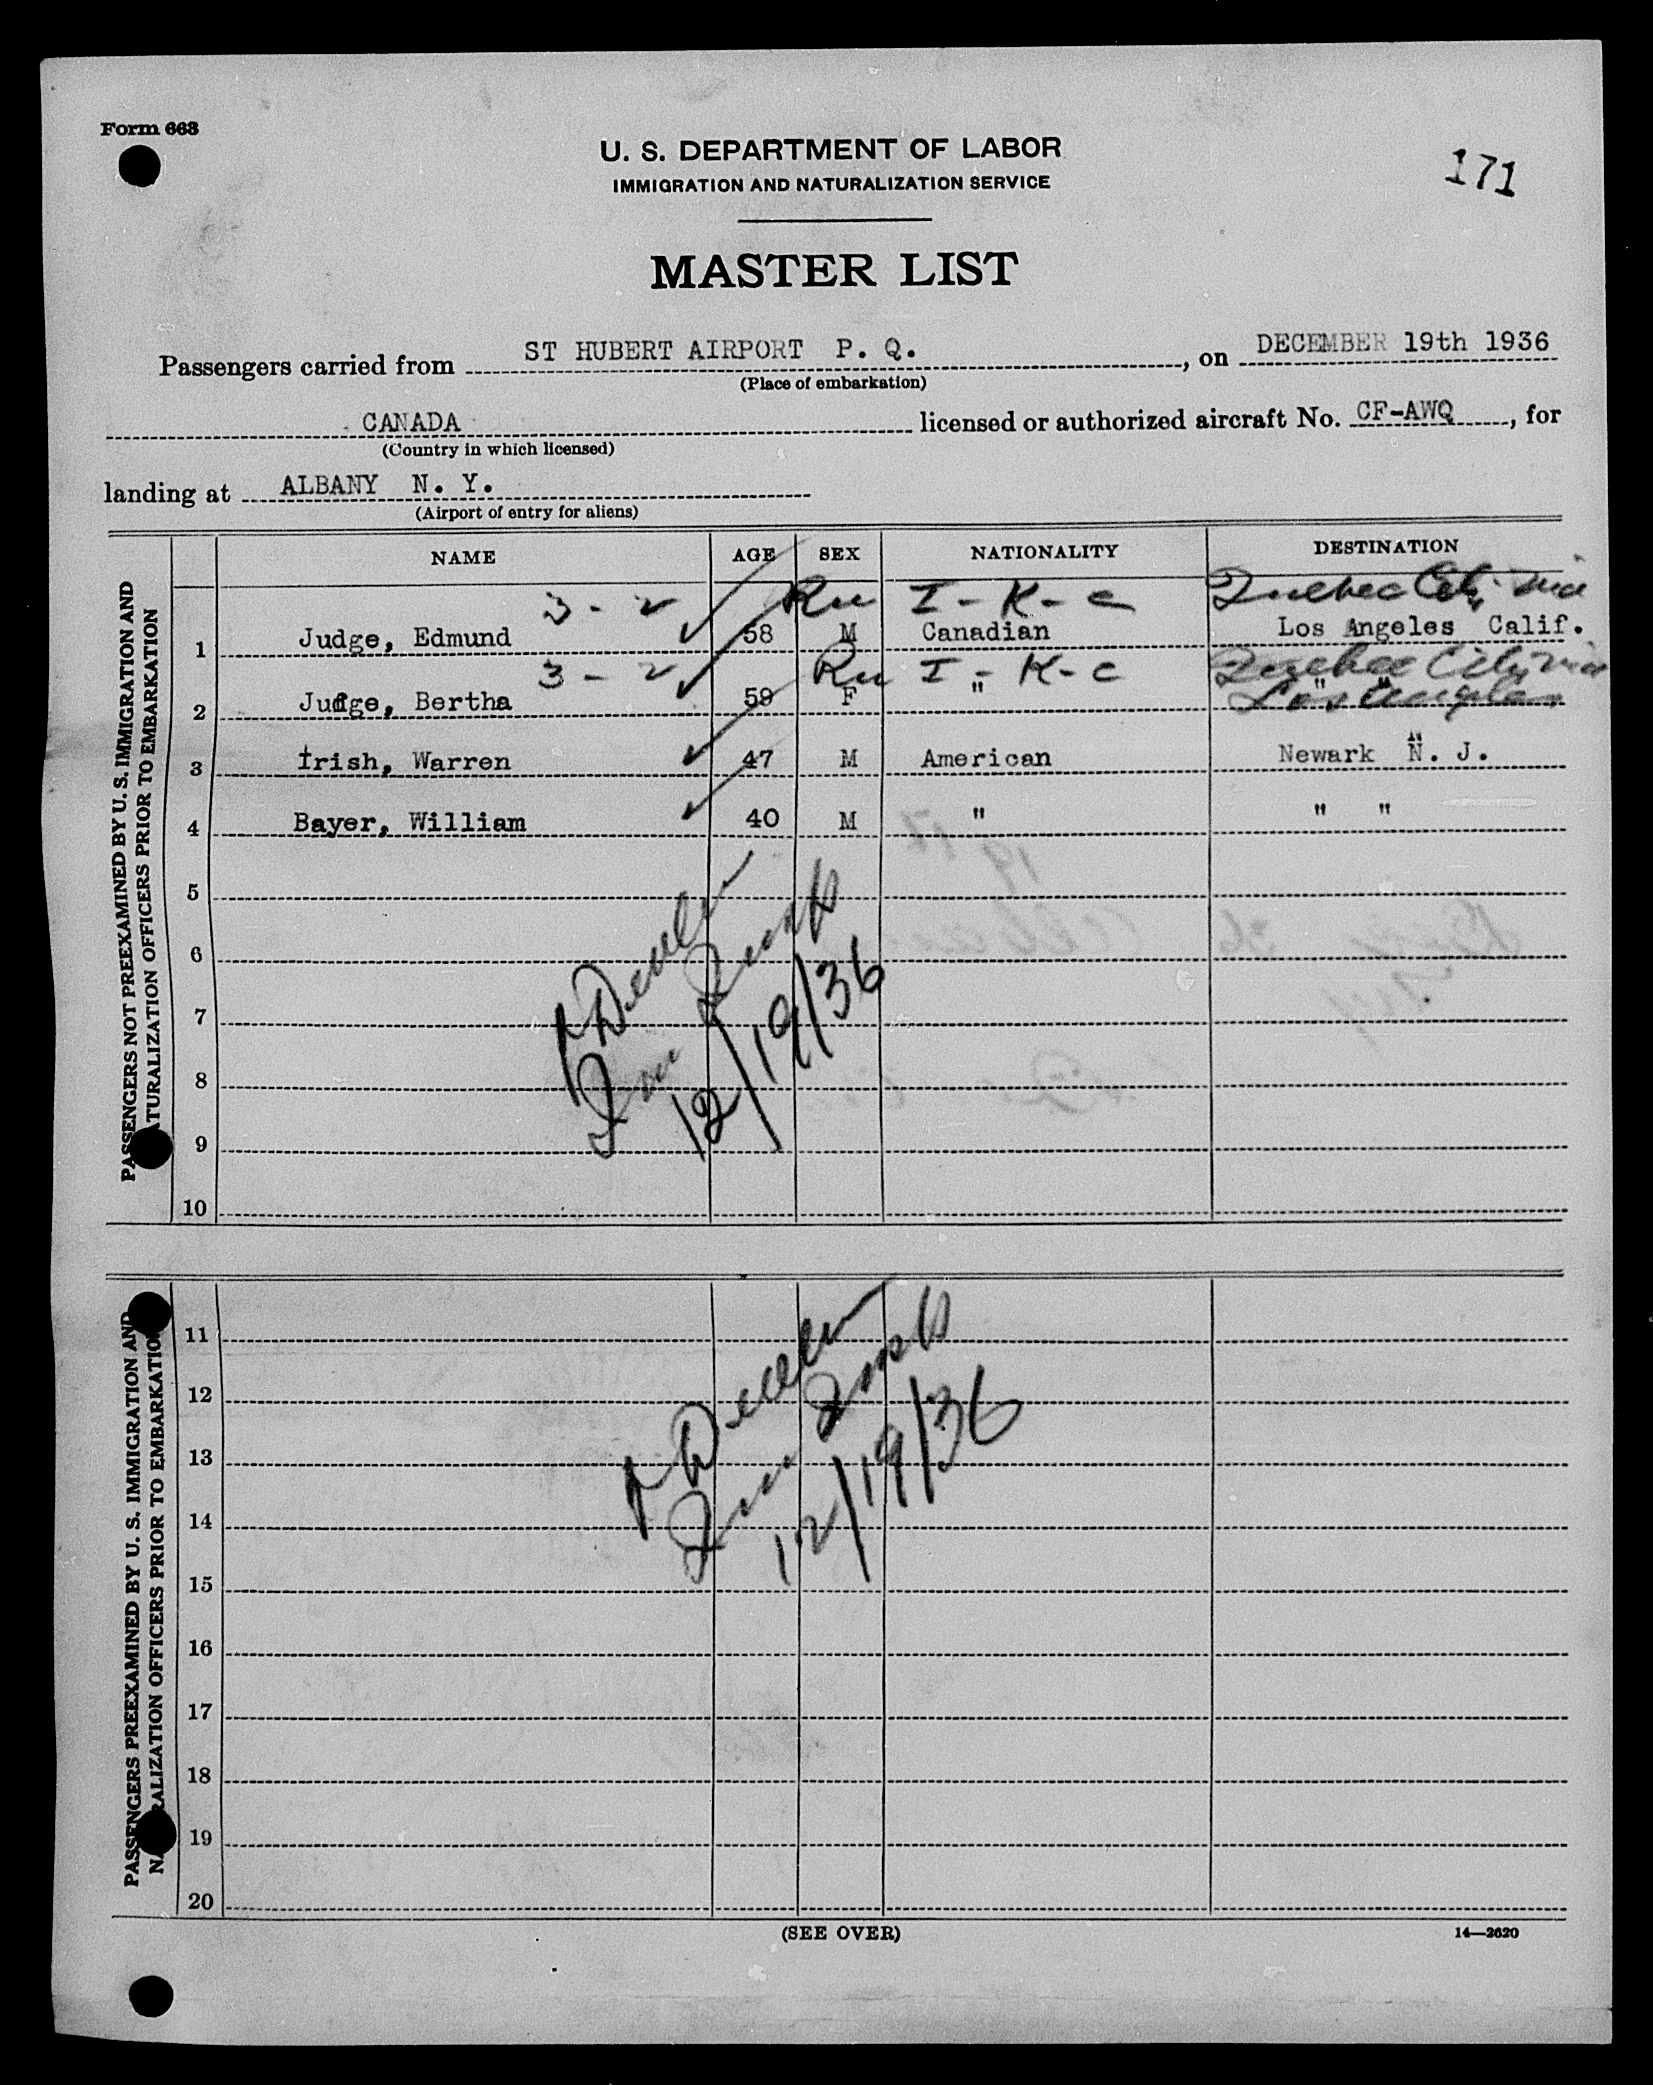 Form 663
U. S. DEPARTMENT OF LABOR
IMMIGRATION AND NATURALIZATION SERVICE
171
MASTER LIST
Passengers carried from ST HUBERT AIRPORT P. Q., on DECEMBER 19th 1936
(Place of embarkation)
CANADA licensed or authorized aircraft No. CF-AWQ, for
(Country in which licensed)
landing at ALBANY N. Y.
(Airport of entry for aliens)
PASSENGERS NOT PREEXAMINED BY U. S. IMMIGRATION AND
NATURALIZATION OFFICERS PRIOR TO EMBARKATION
NAME AGE SEX NATIONALITY DESTINATION
3 - 2 I - K - C Quebec City via
1 Judge, Edmund 58 M Canadian Los Angeles Calif.
3 - 2 I - K - C Quebec City via
2 Judge, Bertha 59 F " " " Los Angeles
3 Irish, Warren 47 M American Newark N. J.
4 Bayer, William 40 M " " "
5
6
7
8
9
10
12/19/36
PASSENGERS PREEXAMINED BY U. S. IMMIGRATION AND
NATURALIZATION OFFICERS PRIOR TO EMBARKATION
11
12
13
14
15
16
17
18
19
20
12/19/36
(SEE OVER)
14—2620